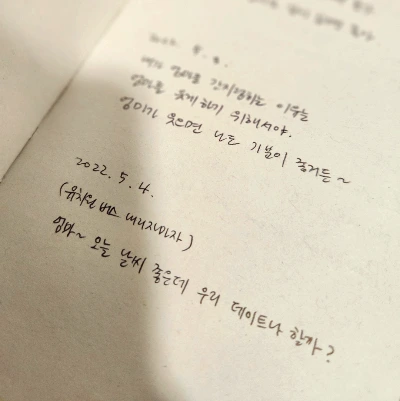 내가 엄마를 간지럽히는 이유는
엄마를 웃게 하기 위해서야.
엄마가 웃으면 나도 기분이 좋거든~
2022. 5. 4.
(유치원 버스 내리자마자)
엄마~ 오늘 날씨 좋은데 우리 데이트나 할까?